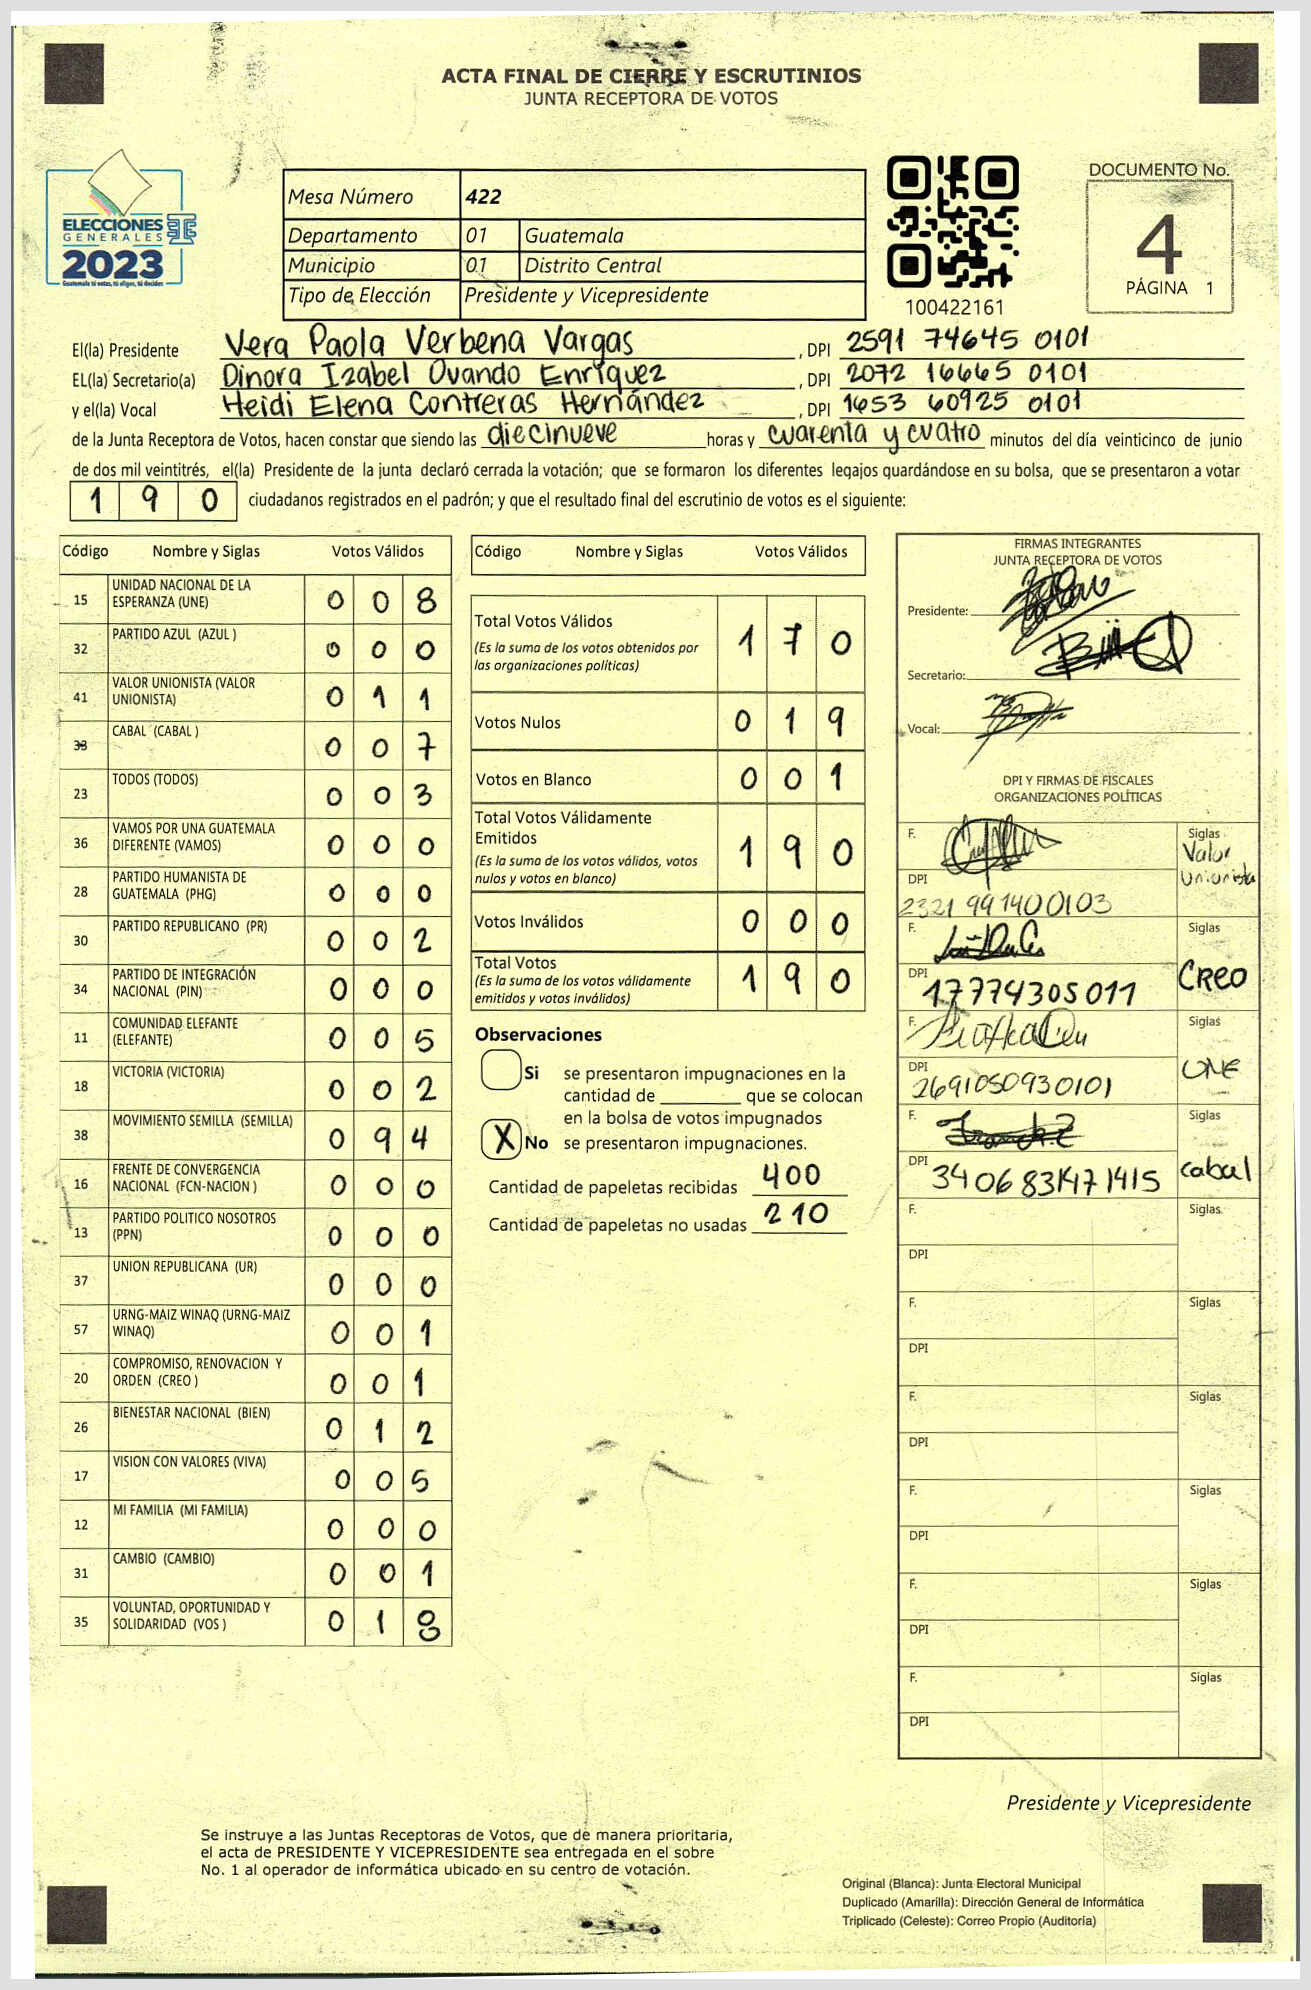 ACTA FINAL DE CIERRE Y ESCRUTINIOS
JUNTA RECEPTORA DE VOTOS
ELECCIONES
GENERALES
2023
Guatemala tú votas, tú eliges, tú decides
Mesa Número 422
Departamento 01 Guatemala
Municipio 01 Distrito Central
Tipo de Elección Presidente y Vicepresidente
100422161
DOCUMENTO No.
4
PÁGINA 1
El(la) Presidente Vera Paola Verbena Vargas, DPI 2591 74645 0101
EL(la) Secretario(a) Dinora Izabel Ovando Enríquez, DPI 2072 16665 0101
y el(la) Vocal Heidi Elena Contreras Hernández, DPI 1653 60925 0101
de la Junta Receptora de Votos, hacen constar que siendo las diecinueve horas y cuarenta y cuatro minutos del día veinticinco de junio
de dos mil veintitrés, el(la) Presidente de la junta declaró cerrada la votación; que se formaron los diferentes legajos guardándose en su bolsa, que se presentaron a votar
1 9 0 ciudadanos registrados en el padrón; y que el resultado final del escrutinio de votos es el siguiente:
Código Nombre y Siglas Votos Válidos
15 UNIDAD NACIONAL DE LA ESPERANZA (UNE) 0 0 8
32 PARTIDO AZUL (AZUL ) 0 0 0
41 VALOR UNIONISTA (VALOR UNIONISTA) 0 1 1
33 CABAL (CABAL ) 0 0 7
23 TODOS (TODOS) 0 0 3
36 VAMOS POR UNA GUATEMALA DIFERENTE (VAMOS) 0 0 0
28 PARTIDO HUMANISTA DE GUATEMALA (PHG) 0 0 0
30 PARTIDO REPUBLICANO (PR) 0 0 2
34 PARTIDO DE INTEGRACIÓN NACIONAL (PIN) 0 0 0
11 COMUNIDAD ELEFANTE (ELEFANTE) 0 0 5
18 VICTORIA (VICTORIA) 0 0 2
38 MOVIMIENTO SEMILLA (SEMILLA) 0 9 4
16 FRENTE DE CONVERGENCIA NACIONAL (FCN-NACION ) 0 0 0
13 PARTIDO POLITICO NOSOTROS (PPN) 0 0 0
37 UNION REPUBLICANA (UR) 0 0 0
57 URNG-MAIZ WINAQ (URNG-MAIZ WINAQ) 0 0 1
20 COMPROMISO, RENOVACION Y ORDEN (CREO ) 0 0 1
26 BIENESTAR NACIONAL (BIEN) 0 1 2
17 VISION CON VALORES (VIVA) 0 0 5
12 MI FAMILIA (MI FAMILIA) 0 0 0
31 CAMBIO (CAMBIO) 0 0 1
35 VOLUNTAD, OPORTUNIDAD Y SOLIDARIDAD (VOS ) 0 1 8
Código Nombre y Siglas Votos Válidos
Total Votos Válidos 1 7 0
(Es la suma de los votos obtenidos por
las organizaciones políticas)
Votos Nulos 0 1 9
Votos en Blanco 0 0 1
Total Votos Válidamente
Emitidos 1 9 0
(Es la suma de los votos válidos, votos
nulos y votos en blanco)
Votos Inválidos 0 0 0
Total Votos 1 9 0
(Es la suma de los votos válidamente
emitidos y votos inválidos)
Observaciones
Si se presentaron impugnaciones en la
cantidad de ________ que se colocan
en la bolsa de votos impugnados
X No se presentaron impugnaciones.
Cantidad de papeletas recibidas 400
Cantidad de papeletas no usadas 210
FIRMAS INTEGRANTES
JUNTA RECEPTORA DE VOTOS
Presidente:
Secretario:
Vocal:
DPI Y FIRMAS DE FISCALES
ORGANIZACIONES POLÍTICAS
F. Siglas Valor Unionista
DPI 2321 991400103
F. Siglas CREO
DPI 17774305011
F. Siglas UNE
DPI 2691050930101
F. Siglas cabal
DPI 3406831471415
F. Siglas
DPI
F. Siglas
DPI
F. Siglas
DPI
F. Siglas
DPI
F. Siglas
DPI
F. Siglas
DPI
Presidente y Vicepresidente
Se instruye a las Juntas Receptoras de Votos, que de manera prioritaria,
el acta de PRESIDENTE Y VICEPRESIDENTE sea entregada en el sobre
No. 1 al operador de informática ubicado en su centro de votación.
Original (Blanca): Junta Electoral Municipal
Duplicado (Amarilla): Dirección General de Informática
Triplicado (Celeste): Correo Propio (Auditoría)